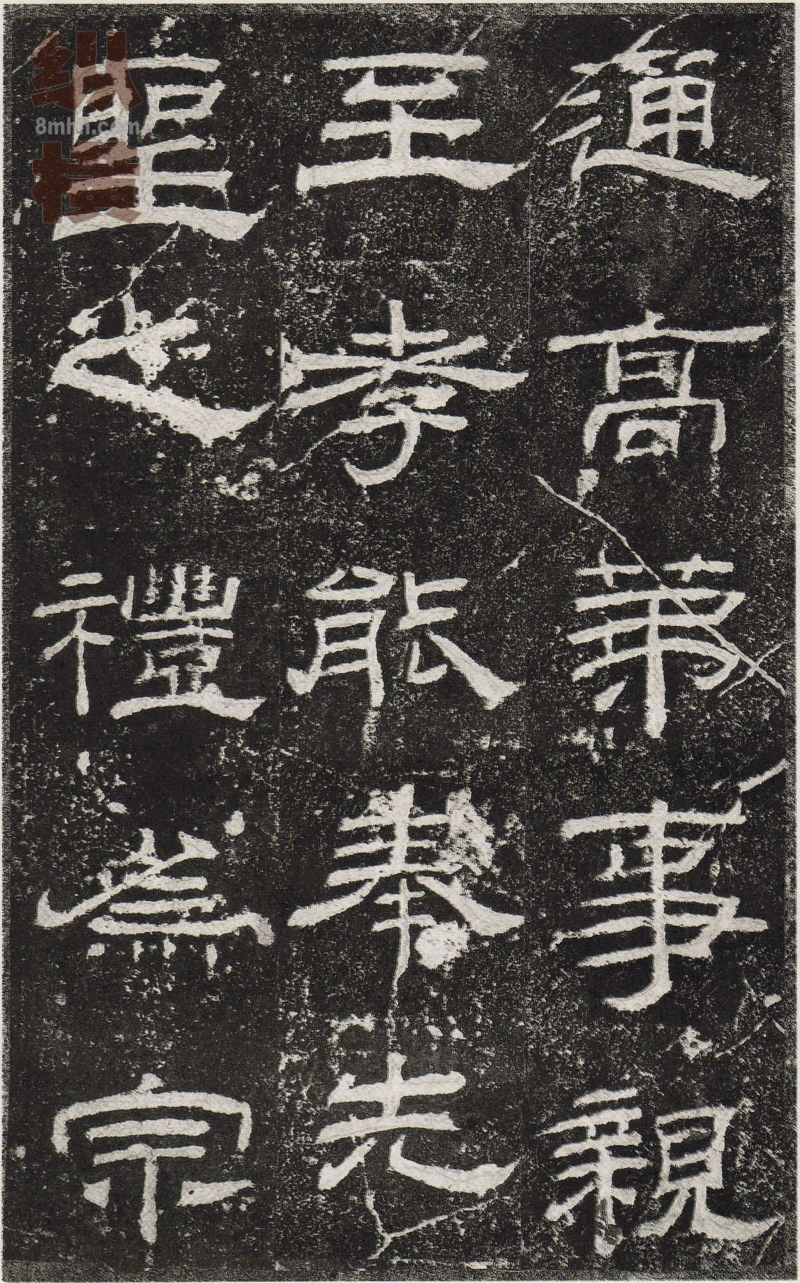 通高第事親
至孝能奉先
聖之禮為宗
纵横